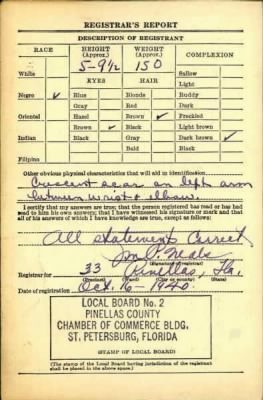 REGISTRAR'S REPORT
DESCRIPTION OF REGISTRANT
RACE HEIGHT (Approx.) WEIGHT (Approx.) COMPLEXION
5-9½ 150
White EYES HAIR Sallow
Light
Negro ✓ Blue Blonde Ruddy
Gray Red Dark
Oriental Hazel Brown ✓ Freckled
Brown ✓ Black Light brown
Indian Black Gray Dark brown ✓
Bald Black
Filipino
Other obvious physical characteristics that will aid in identification
Crescent scar on left arm
between wrist & elbow.
I certify that my answers are true; that the person registered has read or has had
read to him his own answers; that I have witnessed his signature or mark and that
all of his answers of which I have knowledge are true, except as follows:
All statement Correct
Neals
(Signature of registrar)
Registrar for 33 Pinellas, Fla.
(Precinct) (Ward) (City or county) (State)
Date of registration Oct. 16 - 1940.
LOCAL BOARD No. 2
PINELLAS COUNTY
CHAMBER OF COMMERCE BLDG.
ST. PETERSBURG, FLORIDA
(STAMP OF LOCAL BOARD)
(The stamp of the Local Board having jurisdiction of the registrant
shall be placed in the above space.)